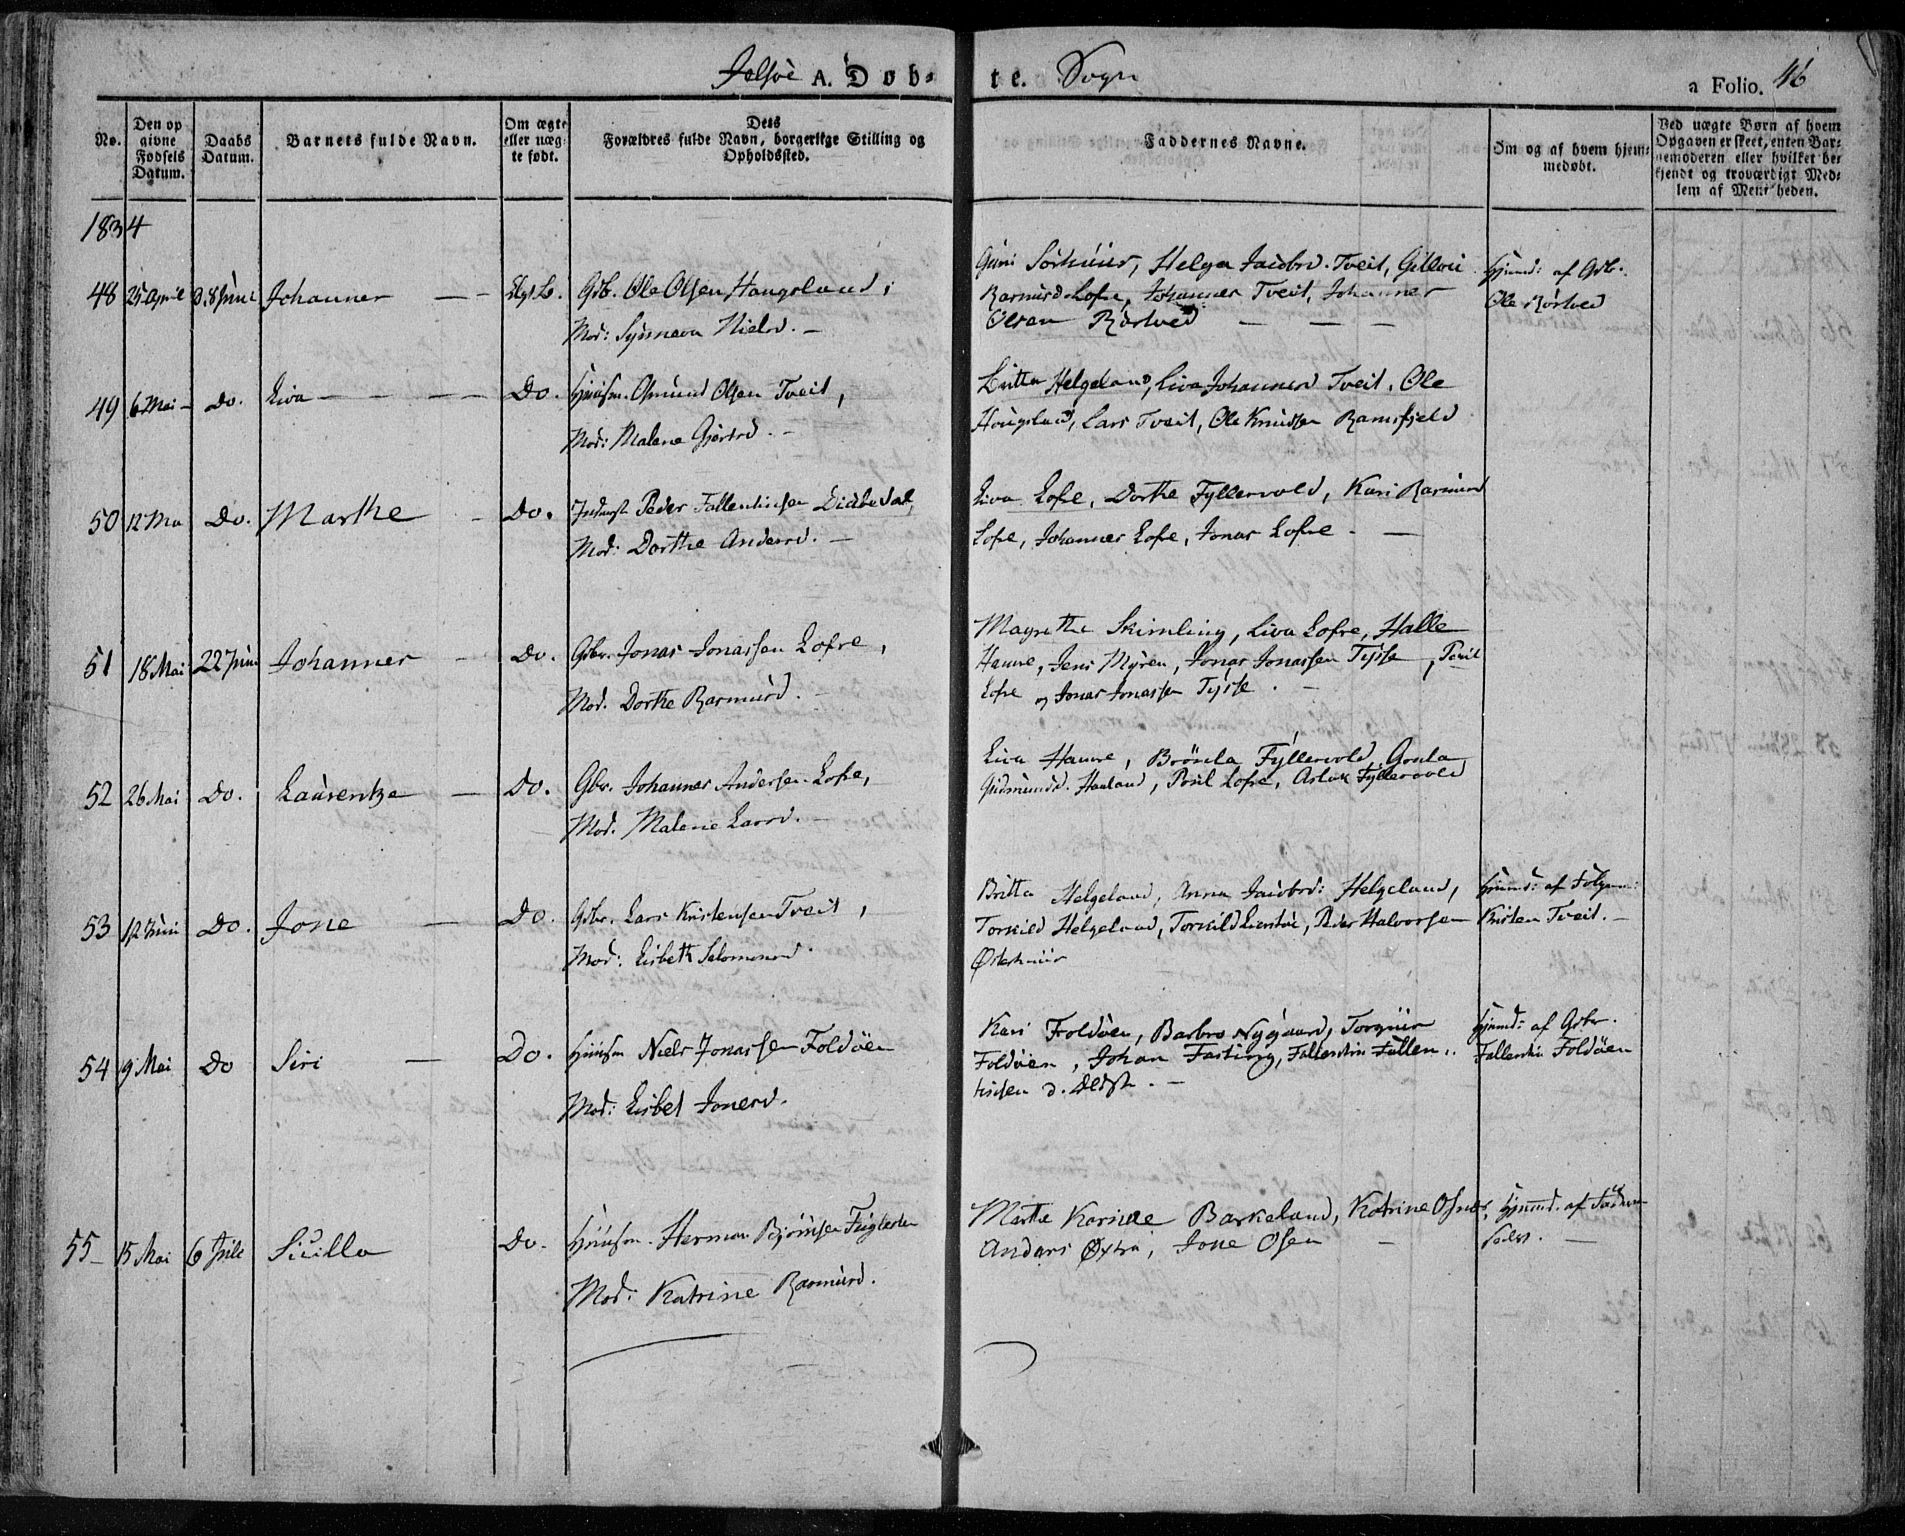 Jelsöe A. Döb- te. Sogn
a Folio. 46
No.
Den op givne Fødsels Datum.
Daabs Datum.
Barnets fulde Navn.
Om ægte eller uæg- te født.
Dets Forældres fulde Navn, borgerlige Stilling og Opholdssted.
Faddernes Navne.
Om og af hvem hjem- medøbt.
Ved uægte Børn af hvem Opgaven er skeet, enten Bar- nemoderen eller hvilket be- kjendt og troværdigt Med- lem af Menigheden.
1834
48 25 April Johannes Gdb. Ole Olsen Haugsland,
Mod: Synneva Nielsd.
Helga Jacobsd. Tveit,
Rasmusd. Lofre, Johannes Tveit, Johannes
Olsen Rörtved
Hjmd: af Gdb.
Ole Rörtved
49 6 Mai Do. Liva Do. Huusm. Osmund Olsen Tveit,
Mod: Malene
Britta Helgeland, Liva Johannesd Tveit, Ole
Hougsland, Lars Tveit, Ole Knudsen Ramsfjeld
50 12 Mai Do. Marthe Do. Peder Fallentinsen
Mod: Dorthe Andersd.
Liva Lofre, Dorthe Fyllesvold, Kari Rasmusd
Lofre, Johannes Lofre, Jonas Lofre
51 18 Mai 22 Juni Johannes Do. Gdbr. Jonas Jonassen Lofre,
Mod. Dorthe Rasmusd.
Magrethe Skimling, Liva Lofre, Halle
Hamre, Jens Myren, Jonas Jonassen Tysse, Povil
Lofre og Jonas Jonassen Tysse.
52 26 Mai Do. Laurentze Do. Gbr. Johannes Andersen Lofre,
Mod. Malene Larsd.
Liva Hamre, Brönla Fyllesvold, Gonla
Gudmundsd. Hauland, Povil Lofre, Aslak Fyllesvold
53 12 Juni Do. Jone Do. Gdbr. Lars Kristensen Tveit,
Mod: Lisbeth Salomonsd.
Britta Helgeland, Anna Jacobsd: Helgeland,
Torkild Helgeland, Torkild Lierstöe, Peder Halvorsen
Østerhuus
Hjmd: af
Kristen Tveit.
54 9 Mai Do Siri Do. Huusm Niels Jonassen Foldöen
Mod: Lisbet Jonesd.
Kari Foldöen, Barbro Nygaard, Torgius
Foldöen, Johan Fasting, Fallentin Fallen-
tinsen d. Eldste.
Hjmd: af Gdbr.
Fallentin Foldöen
55 15 Mai 6 Juli Sicilla Do. Huusm. Herman Björnsen
Mod: Katrine Rasmusd.
Marthe Karine Barkeland, Katrine
Anders Øxtra, Jone Osen
Hjmd. af